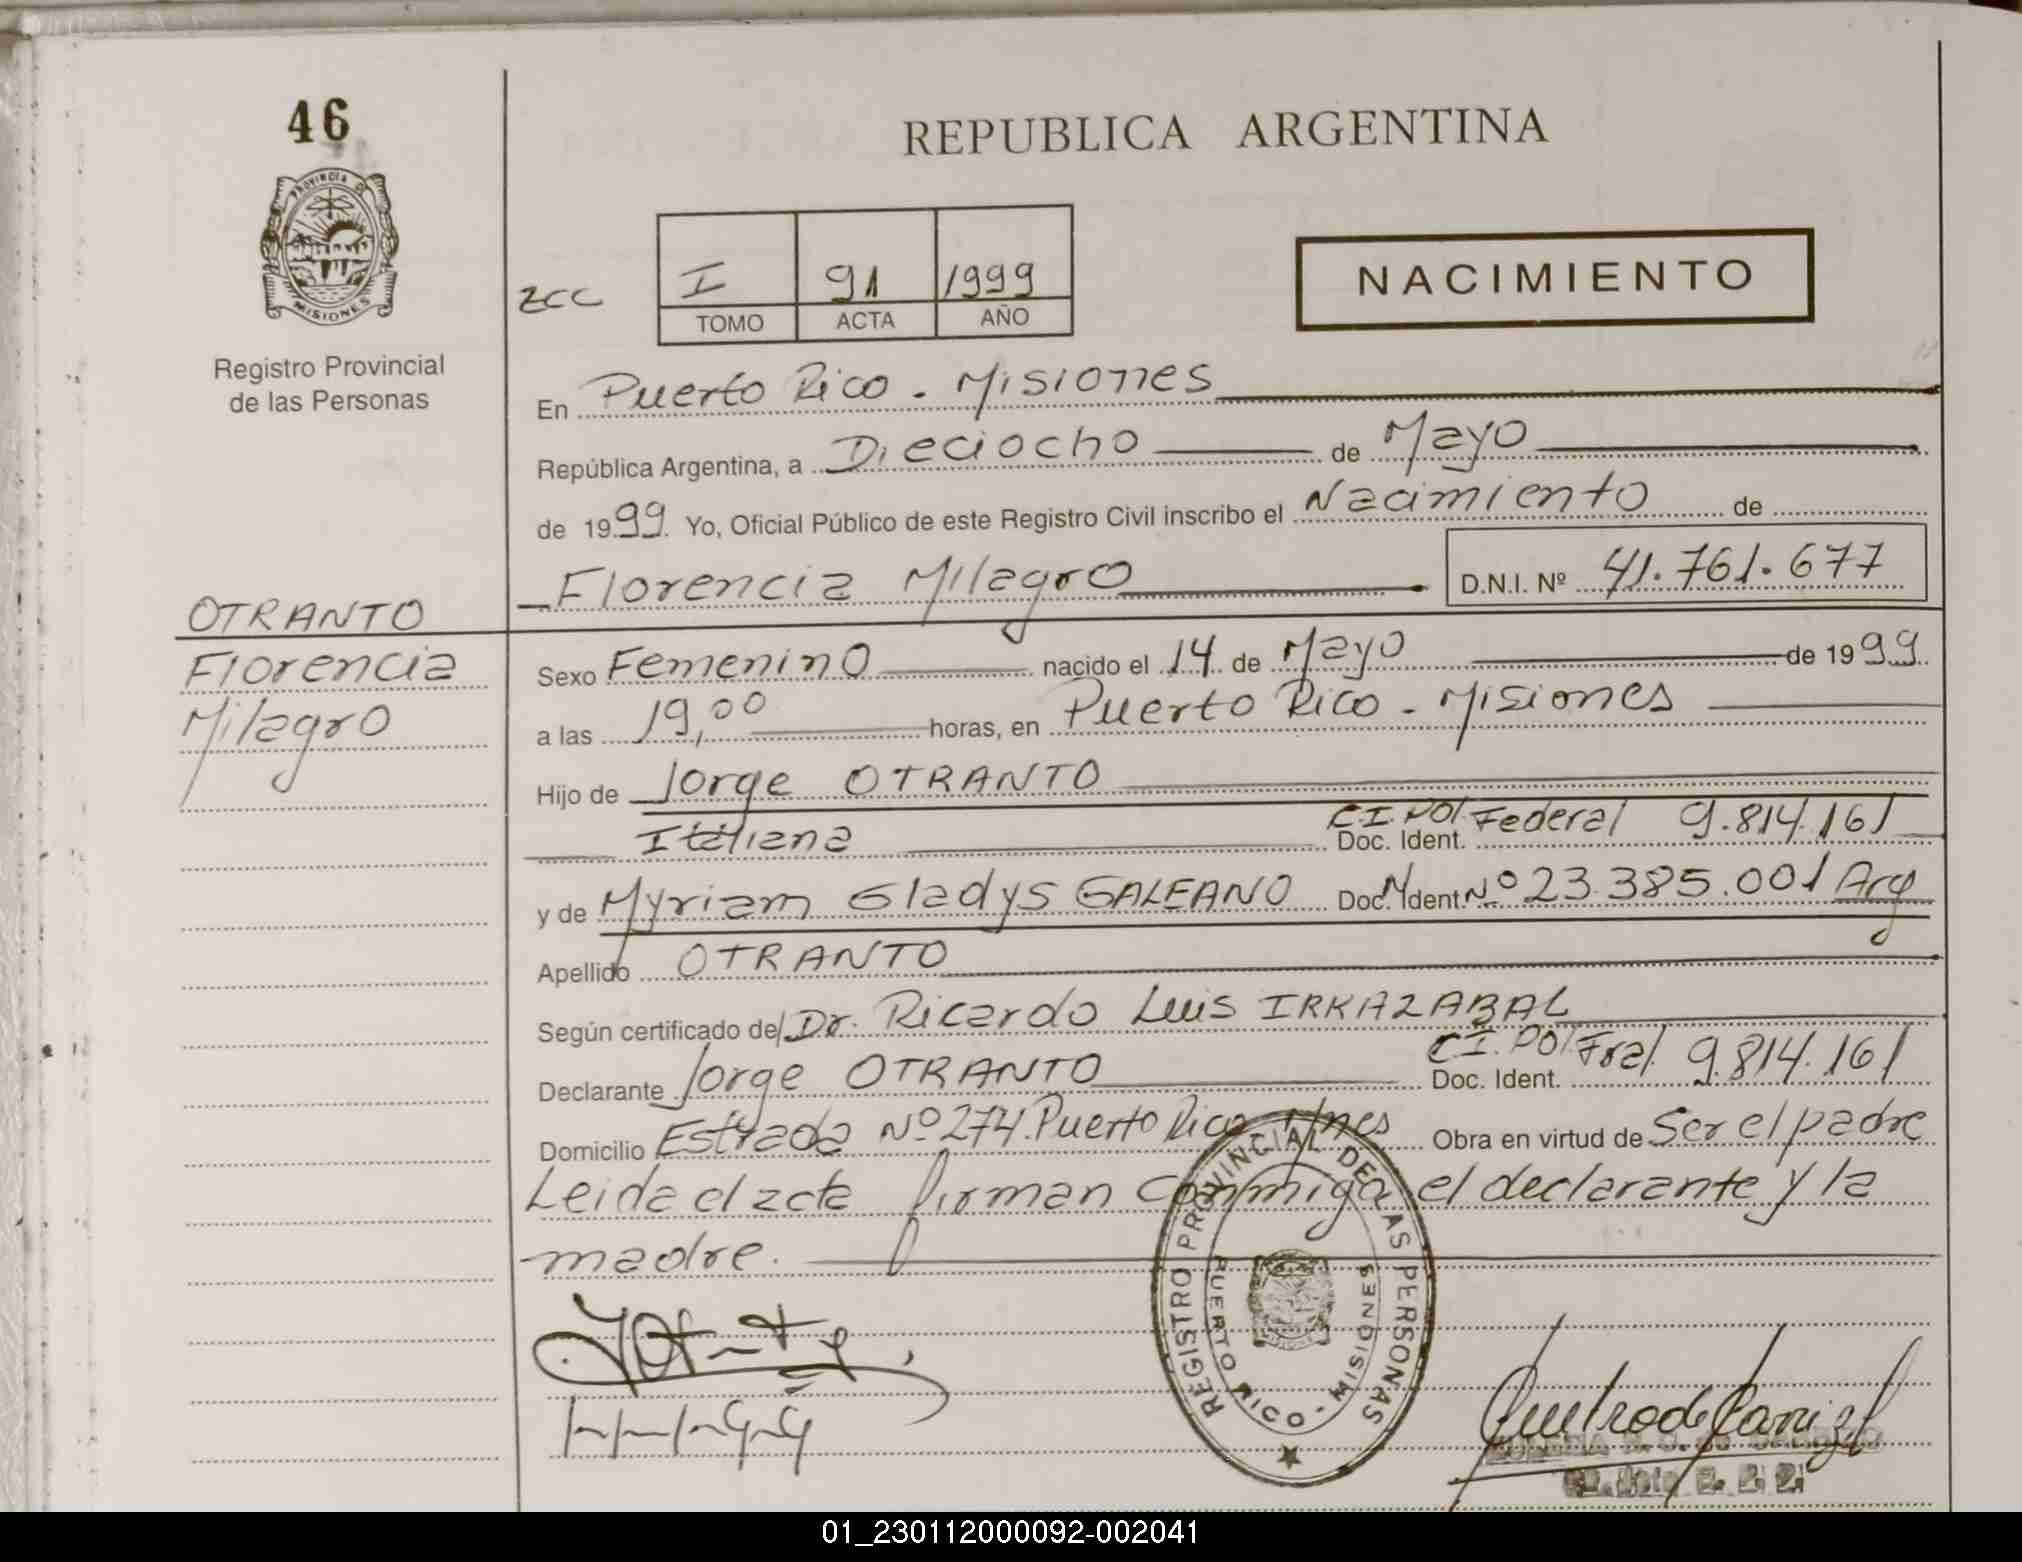 46
REPUBLICA ARGENTINA
PROVINCIA DE
MISIONES
Registro Provincial
de las Personas
zcc
I 91 1999
TOMO ACTA AÑO
NACIMIENTO
En Puerto Rico - Misiones
República Argentina, a Dieciocho de Mayo
de 1999 Yo, Oficial Público de este Registro Civil inscribo el Nacimiento de
Florencia Milagro D.N.I. Nº 41.761.677
OTRANTO
Florencia
Milagro
Sexo Femenino nacido el 14 de Mayo de 1999
a las 19,00 horas, en Puerto Rico - Misiones
Hijo de Jorge OTRANTO
Italiana C.I. Pol. Federal Doc. Ident. 9.814.161
y de Myriam Gladys GALEANO Doc. Ident. Nº 23.385.001 Arg
Apellido OTRANTO
Según certificado del Dr. Ricardo Luis IRRAZABAL
Declarante Jorge OTRANTO C.I. Pol. Fral. Doc. Ident. 9.814.161
Domicilio Estrada Nº 274. Puerto Rico Mnes Obra en virtud de Ser el padre
Leida el acta firman conmigo el declarante y la
madre.
REGISTRO PROVINCIAL DE LAS PERSONAS
PUERTO RICO - MISIONES
01_230112000092-002041